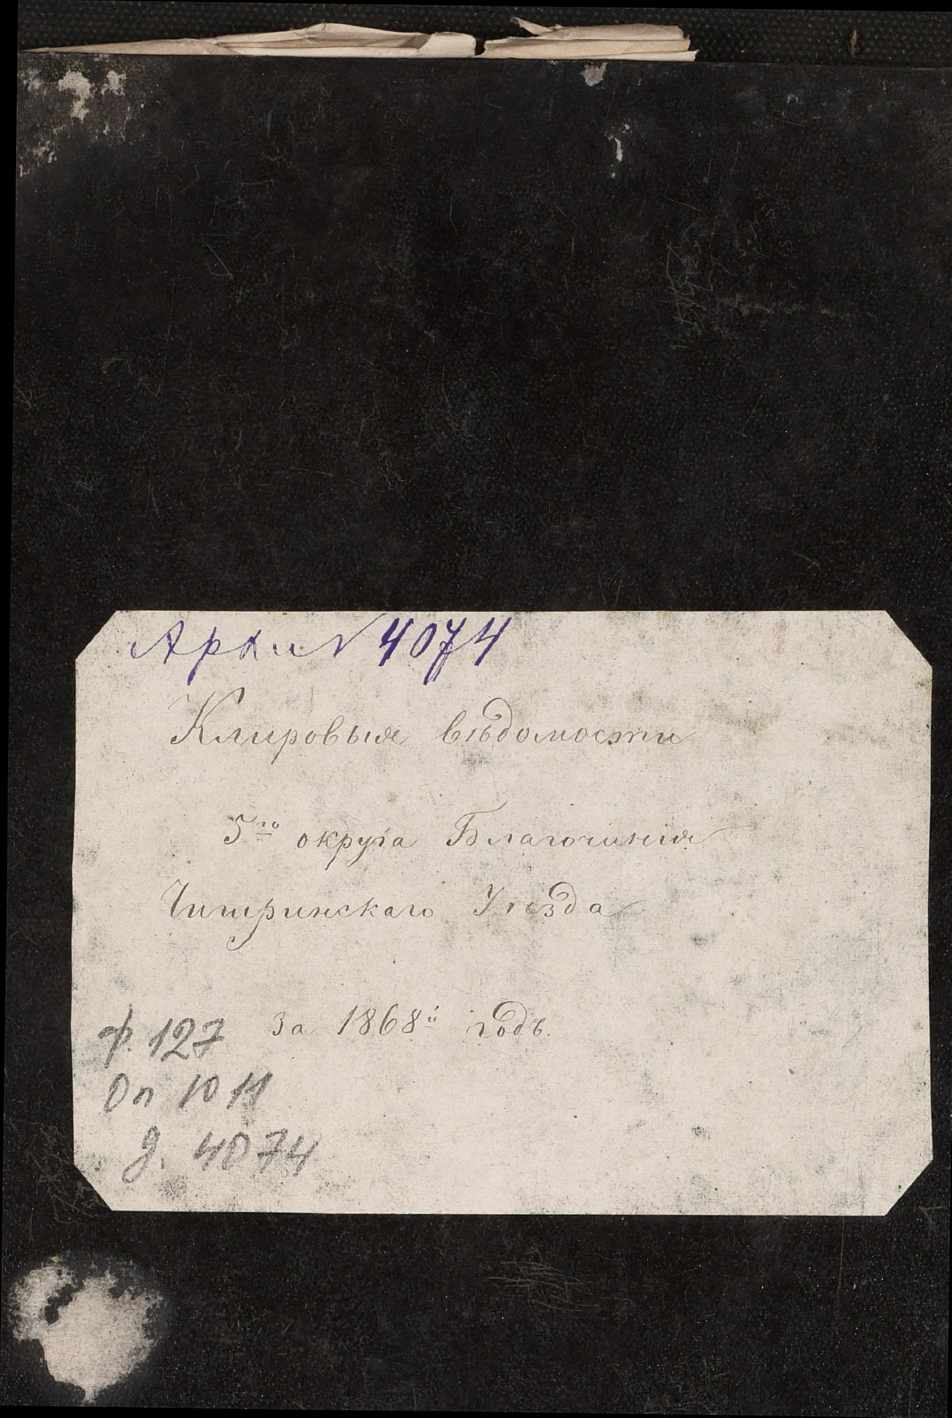 Архи № 4074
Клировыя вѣдомости
5го округа Благочинія
Чигиринскаго Уѣзда
за 1868й годъ.
ф. 127
Оп 1011
д. 4074